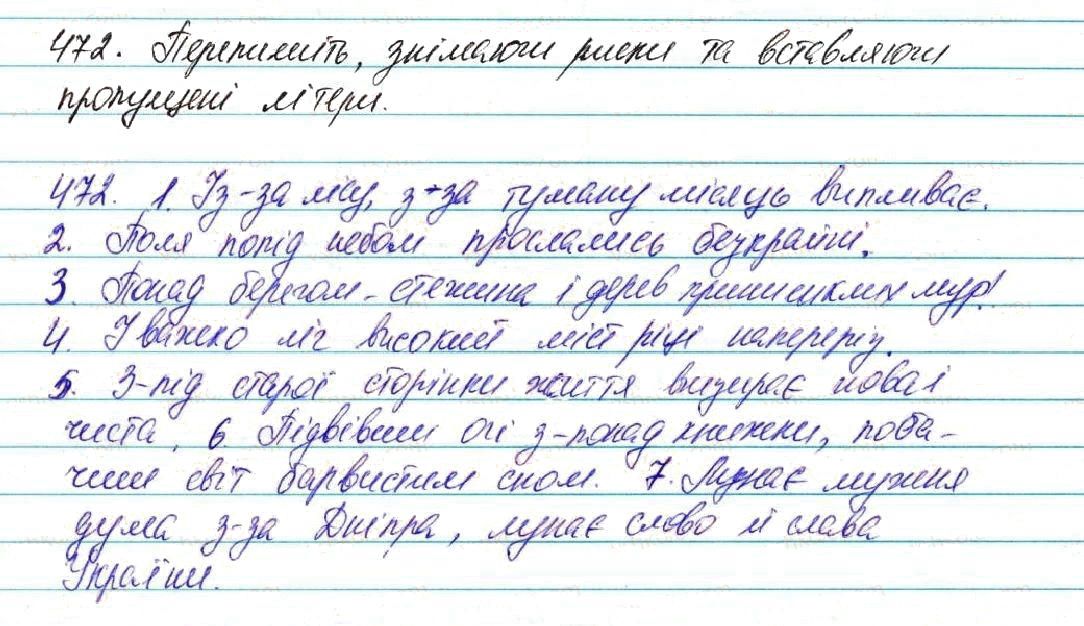 472. Перепишіть, знімаючи риски та вставляючи
пропущені літери.
472. 1. Із-за лісу, з-за туману місяць випливає.
2. Поля попід небом прослались безкраїні.
3. Понад берегом - стежина і дерев принишклих мур!
4. І важко ліг високий міст ріці наперерiз.
5. З-під старої сторінки життя визирає нова і
чиста. 6. Підвівши очі з-понад книжки, поба-
чиш світ барвистим сном. 7. Лунає мужня
дума з-за Дніпра, лунає слово й слава
України.